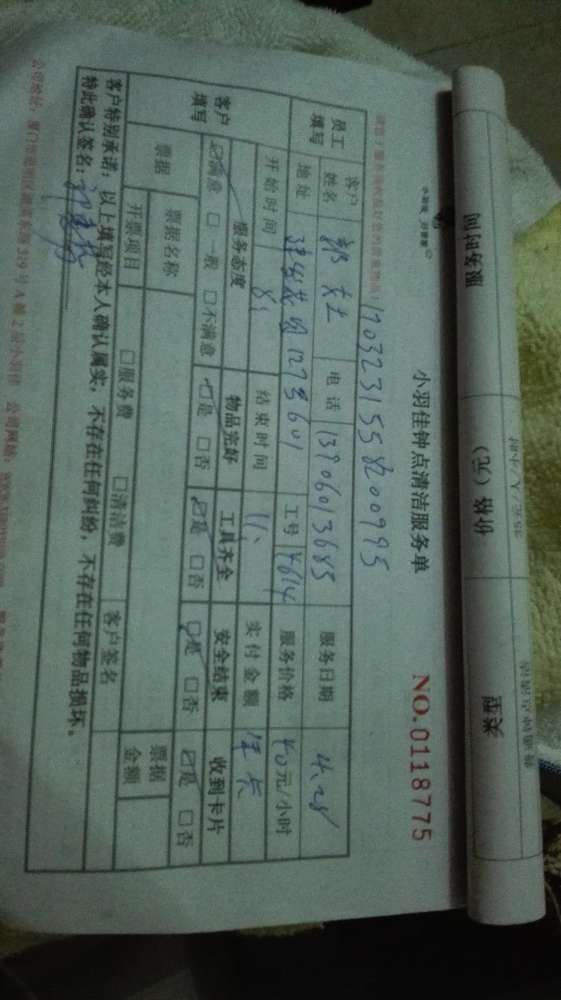 服务时间 价格（元） 类型
小羽佳钟点清洁服务单
NO.0118775
17032315582００995
员工填写 客户姓名 郭女士 电话 13906013685 服务日期 4.28
地址 建发花园127号601 工号 4614 服务价格 40元/小时
客户填写 开始时间 8: 结束时间 11: 实付金额 年卡
服务态度 物品完好 工具齐全 安全结束 收到卡片
☑满意 □一般 □不满意 ☑是 □否 ☑是 □否 ☑是 □否 ☑是 □否
票据 票据名称 票据金额
开票项目 □服务费 □清洁费 客户签名
客户特别承诺：以上填写经本人确认属实，不存在任何纠纷，不存在任何物品损坏。
特此确认签名：